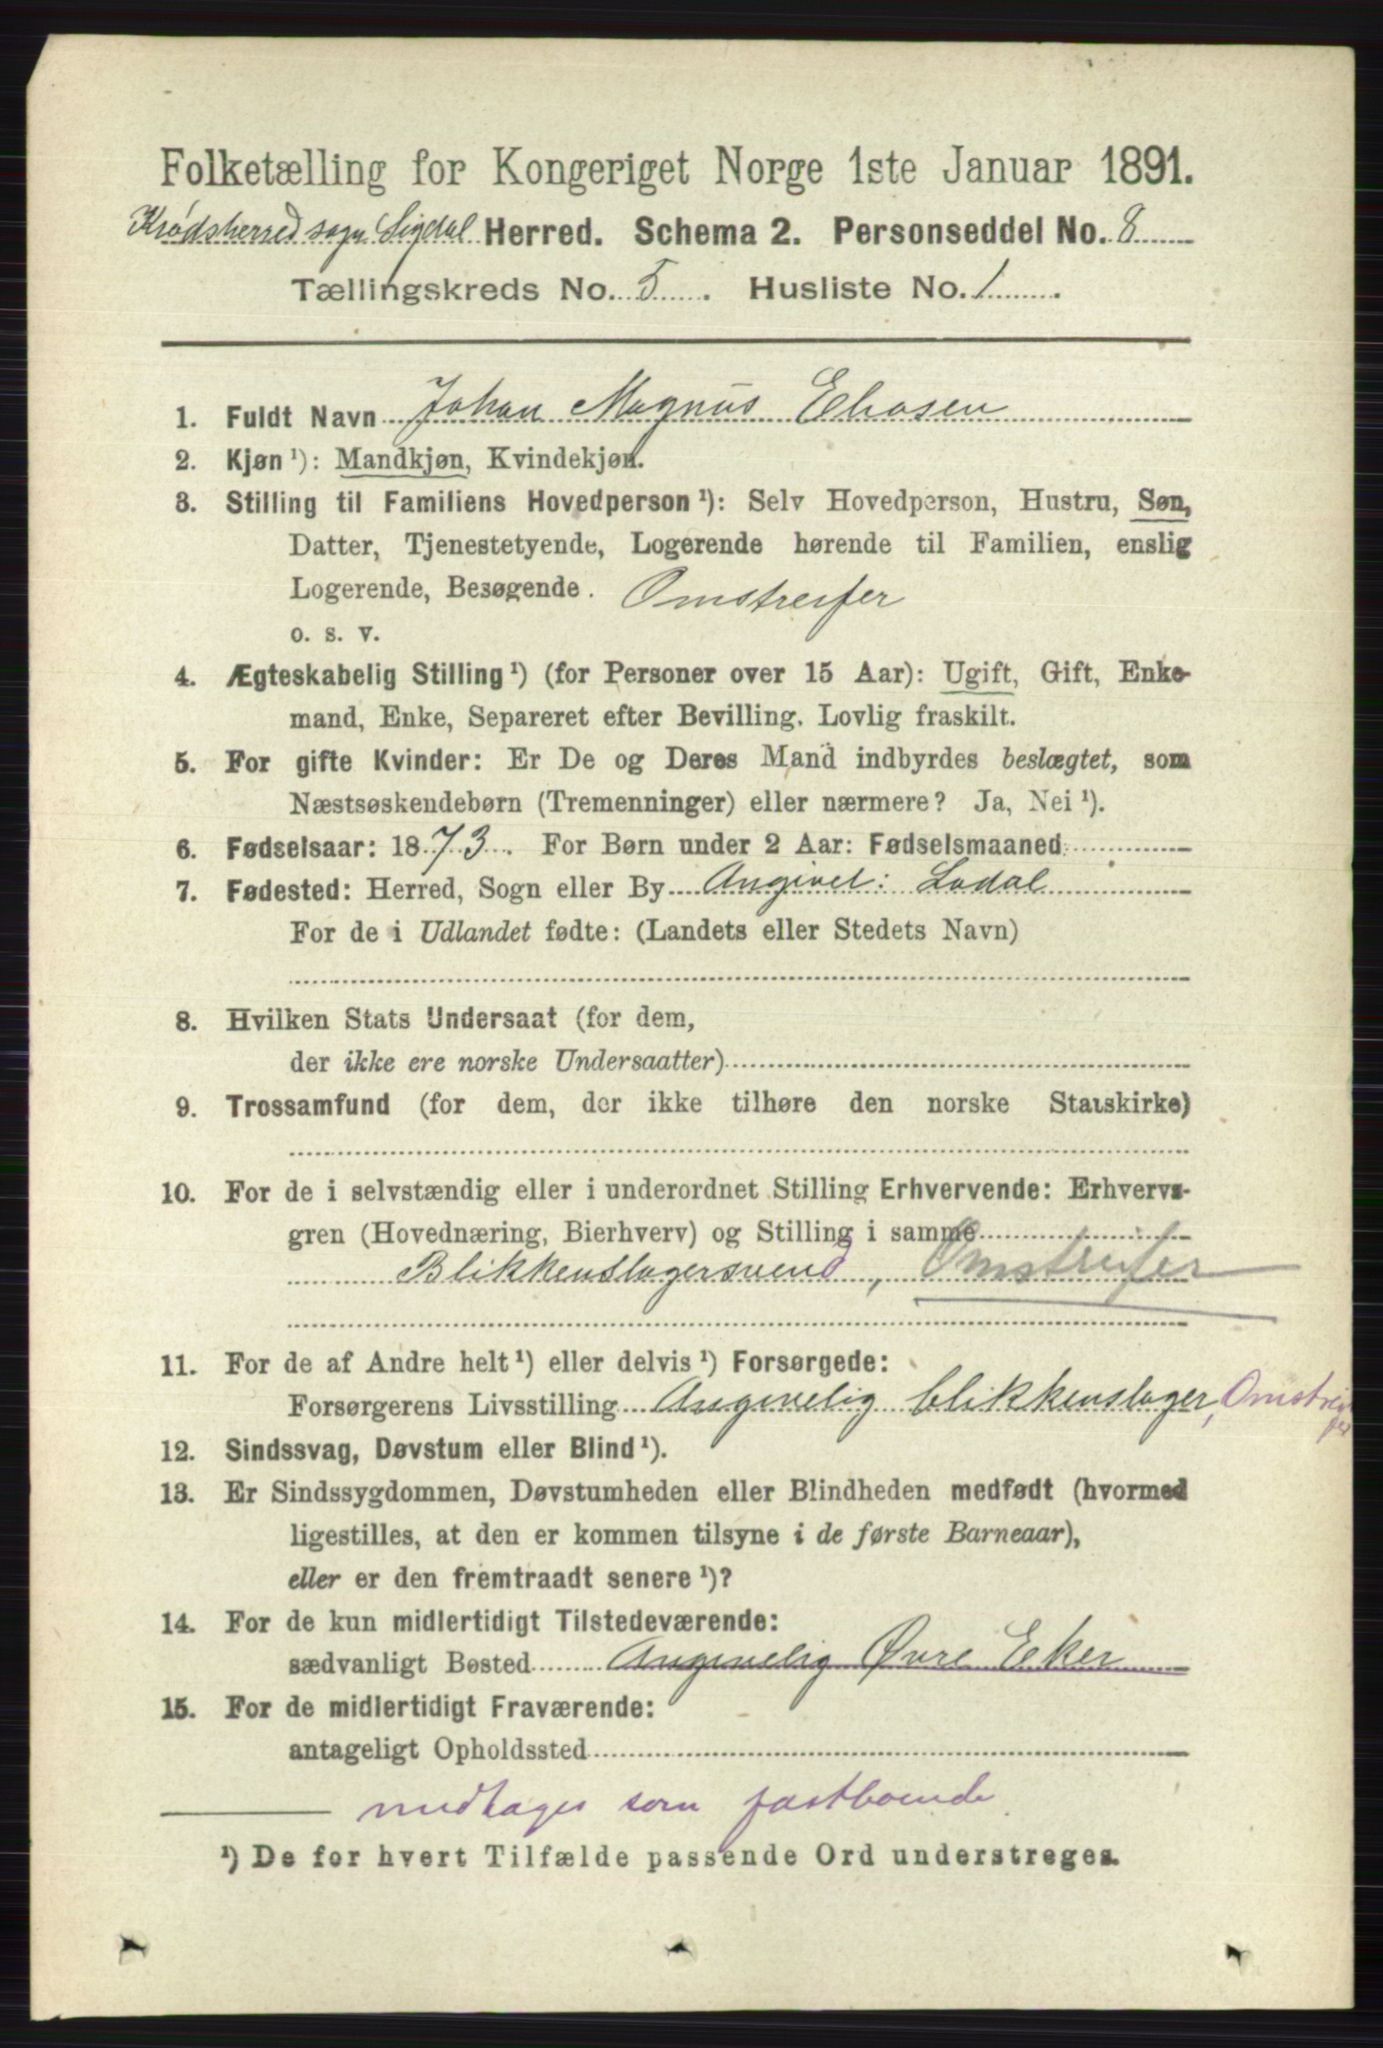 Folketælling for Kongeriget Norge 1ste Januar 1891.
Krødsherred sogn Sigdal Herred. Schema 2. Personseddel No. 8
Tællingskreds No. 5. Husliste No. 1.
1. Fuldt Navn Johan Magnus Eliasen
2. Kjøn ¹): Mandkjøn, Kvindekjøn.
3. Stilling til Familiens Hovedperson ¹): Selv Hovedperson, Hustru, Søn,
Datter, Tjenestetyende, Logerende hørende til Familien, enslig
Logerende, Besøgende. Omstreifer
o. s. v.
4. Ægteskabelig Stilling ¹) (for Personer over 15 Aar): Ugift, Gift, Enke-
mand, Enke, Separeret efter Bevilling. Lovlig fraskilt.
5. For gifte Kvinder: Er De og Deres Mand indbyrdes beslægtet, som
Næstsøskendebørn (Tremenninger) eller nærmere? Ja, Nei ¹).
6. Fødselsaar: 1873. For Børn under 2 Aar: Fødselsmaaned
7. Fødested: Herred, Sogn eller By Angivel: Lodal
For de i Udlandet fødte: (Landets eller Stedets Navn)
8. Hvilken Stats Undersaat (for dem,
der ikke ere norske Undersaatter)
9. Trossamfund (for dem, der ikke tilhøre den norske Statskirke)
10. For de i selvstændig eller i underordnet Stilling Erhvervende: Erhvervs-
gren (Hovednæring, Bierhverv) og Stilling i samme
Blikkenslagersvend, Omstreifer
11. For de af Andre helt ¹) eller delvis ¹) Forsørgede:
Forsørgerens Livsstilling Angivelig blikkenslager, Omstreifer
12. Sindssvag, Døvstum eller Blind ¹).
13. Er Sindssygdommen, Døvstumheden eller Blindheden medfødt (hvormed
ligestilles, at den er kommen tilsyne i de første Barneaar),
eller er den fremtraadt senere ¹)?
14. For de kun midlertidigt Tilstedeværende:
sædvanligt Bosted Angivelig Øvre Eker
15. For de midlertidigt Fraværende:
antageligt Opholdssted
medtages som fastboende
¹) De for hvert Tilfælde passende Ord understreges.